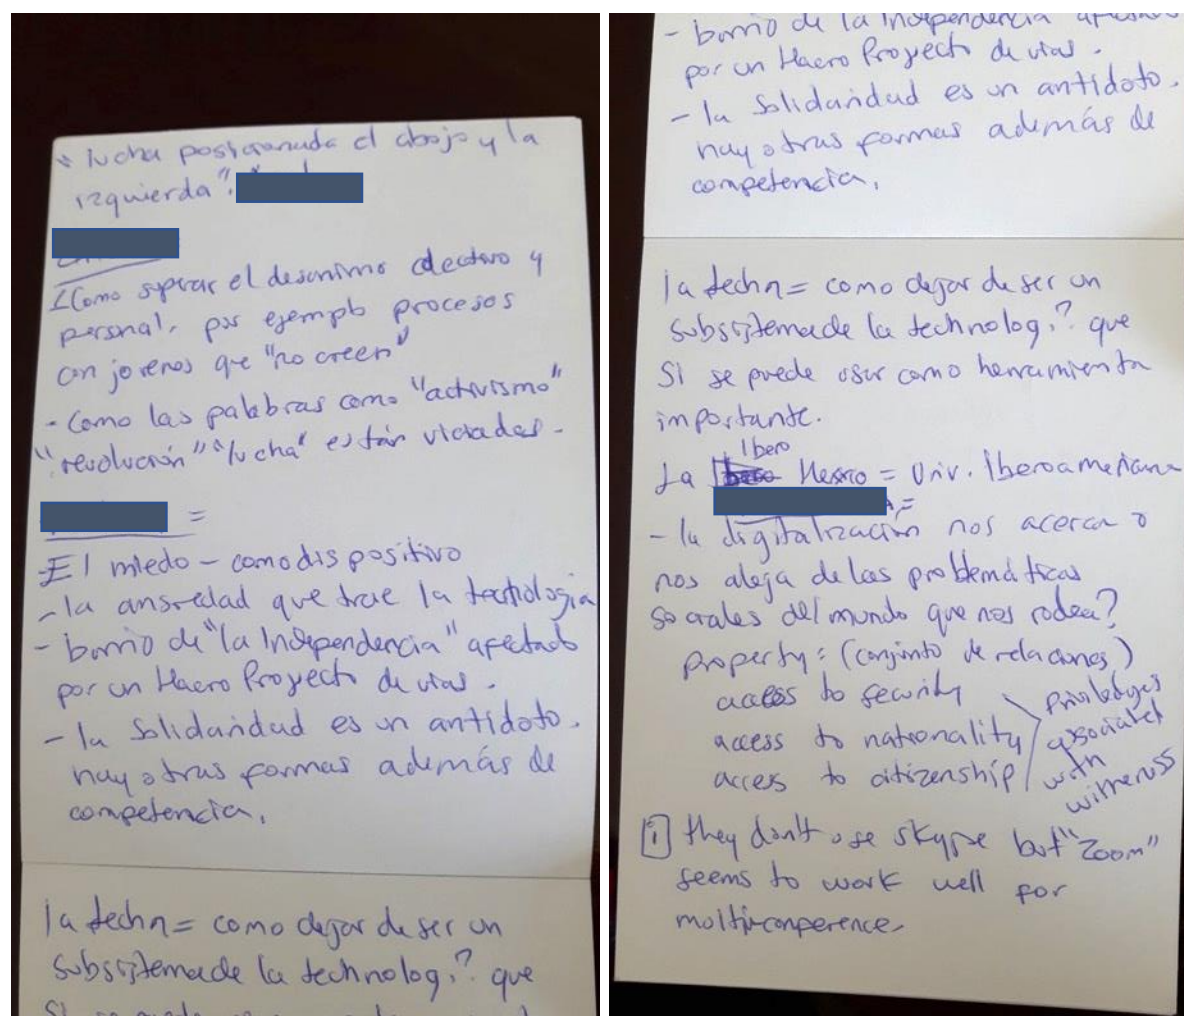 "lucha posicionada el abajo y la
izquierda".
¿Como superar el desanimo colectivo y
personal, por ejemplo procesos
con jovenes que "no creen"
- Como las palabras como "activismo"
"revolución" "lucha" están viciadas -
=
- El miedo - como dispositivo
- la ansiedad que trae la technologia
- barrio de "la Independencia" afectado
por un Macro Proyecto de vias.
- la Solidaridad es un antidoto.
hay otras formas además de
competencia.
la techn = como dejar de ser un
subsistema de la technolog.? que
Si
- barrio de la Independencia afectado
por un Macro Proyecto de vias.
- la Solidaridad es un antidoto.
hay otras formas además de
competencia.
la techn = como dejar de ser un
subsistema de la technolog.? que
Si se puede usar como herramienta
importante.
La Ibero Mexico = Univ. Iberoamericana
=
- la digitalización nos acerca o
nos aleja de las problemáticas
sociales del mundo que nos rodea?
property = (conjunto de relaciones)
access to security
access to nationality
access to citizenship
priviledges
associated
with
witheness
[i] they don't use skype but "Zoom"
seems to work well for
multiconference.